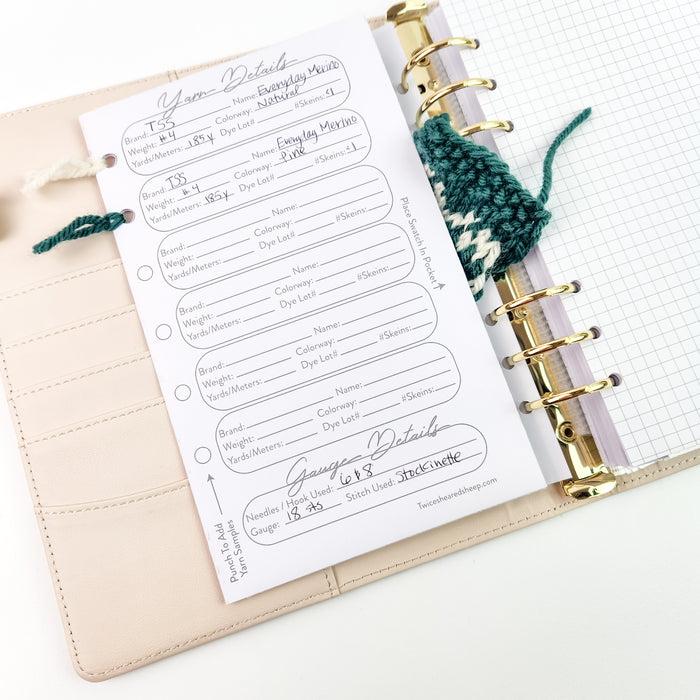 Yarn Details
Brand: TSS Name: Everyday Merino
Weight: #4 Colorway: Natural
Yards/Meters: 185y Dye Lot# #Skeins: 1
Brand: TSS Name: Everyday Merino
Weight: #4 Colorway: Pine
Yards/Meters: 185y Dye Lot# #Skeins: 1
Brand: Name:
Weight: Colorway:
Yards/Meters: Dye Lot# #Skeins:
Brand: Name:
Weight: Colorway:
Yards/Meters: Dye Lot# #Skeins:
Brand: Name:
Weight: Colorway:
Yards/Meters: Dye Lot# #Skeins:
Brand: Name:
Weight: Colorway:
Yards/Meters: Dye Lot# #Skeins:
Gauge Details
Needles / Hook Used: 6 & 8
Gauge: 18 sts Stitch Used: Stockinette
Twiceshearedsheep.com
Punch To Add
Yarn Samples
Place Swatch In Pocket